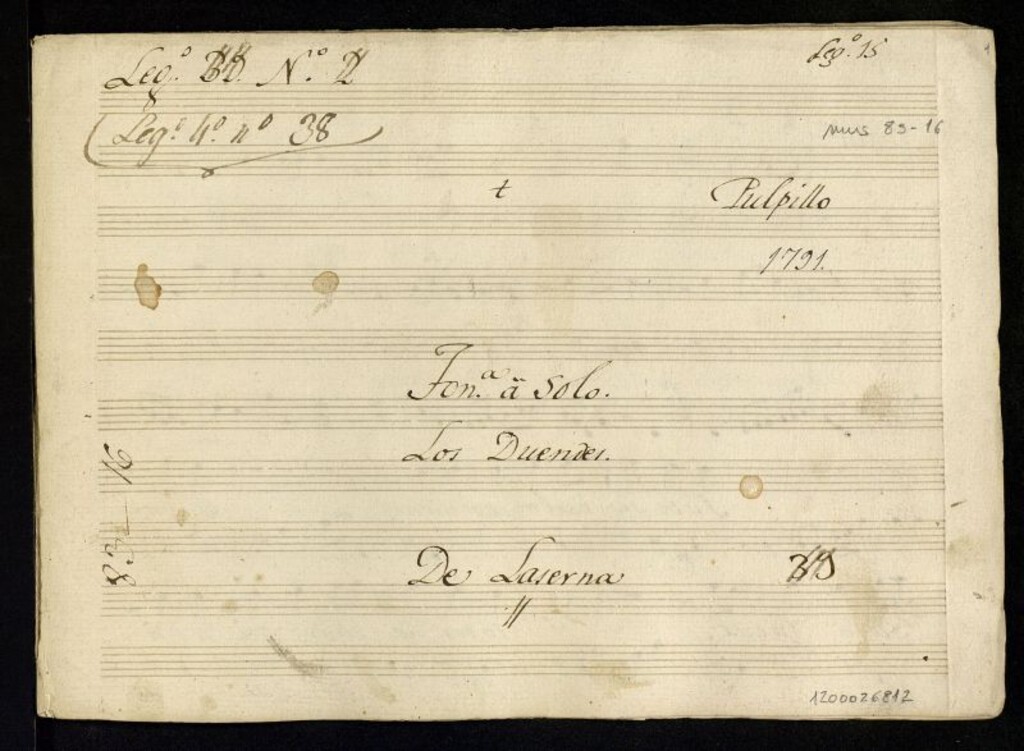 Leg.º N.º
Leg.º 15
Leg.º 4.º nº 38
mus 83-16
Pulpillo
1791.
Ton.ª à Solo.
Los Duendes.
83-16
De Laserna
1200026812